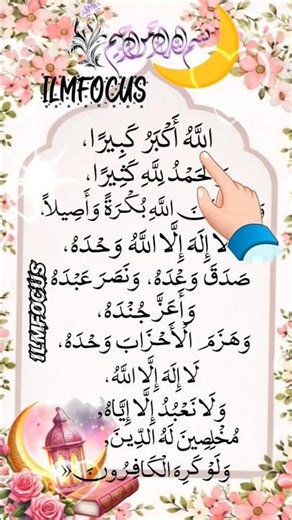 ILMFOCUS
اللَّهُ أَكْبَرُ كَبِيرًا،
لِلَّهِ كَثِيرًا،
اللَّهِ بُكْرَةً وَأَصِيلاً،
لَا إِلَهَ إِلَّا اللَّهُ وَحْدَهُ،
صَدَقَ وَعْدَهُ، وَنَصَرَ عَبْدَهُ
وَأَعَزَّ جُنْدَهُ،
وَهَزَمَ الْأَحْزَابَ وَحْدَهُ،
لَا إِلَهَ إِلَّا اللَّهُ،
وَلَا نَعْبُدُ إِلَّا إِيَّاهُ,
مُخْلِصِينَ لَهُ الدِّينَ,
وَلَوْ كَرِهَ الْكَافِرُونَ «
ILMFOCUS